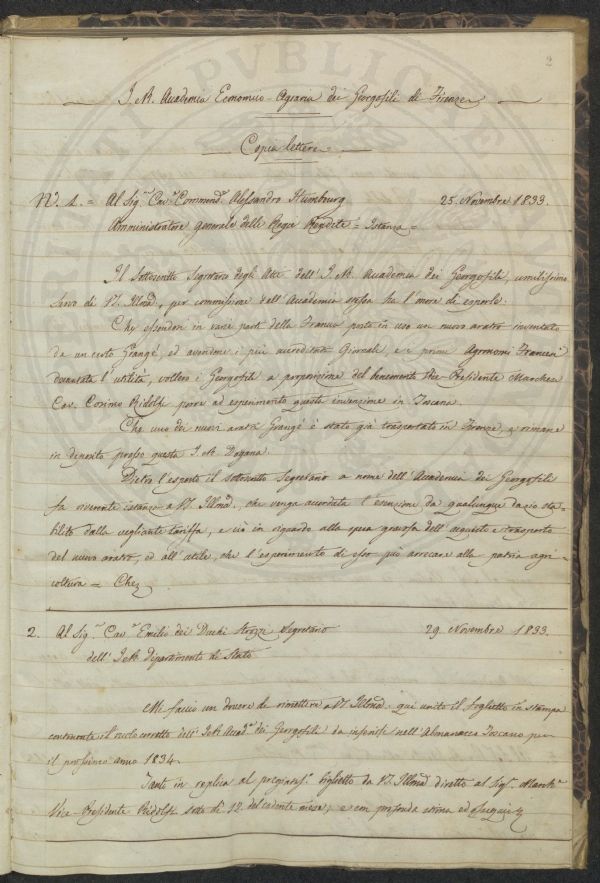 2
I. R. Accademia Economico-Agraria dei Georgofili di Firenze
Copia lettere
N.° 1. = Al Sig.r Cav.r Commend.r Alessandro Humbourg 25. Novembre 1833.
Amministratore generale delle Regie Rendite = Istanza =
Il Sottoscritto Segretario degli Atti dell'I. R. Accademia dei Georgofili, umilissimo
servo di V.S. Illma, per commissione dell'Accademia stessa ha l'onore di esporle:
Che essendosi in varie parti della Francia posto in uso un nuovo aratro inventato
da un certo Grangé, ed avendone i più accreditati Giornali, e i primi Agronomi Francesi
decantata l'utilità, vollero i Georgofili a proposizione del benemerito Vice-Presidente Marchese
Cav. Cosimo Ridolfi porre ad esperimento questa invenzione in Toscana.
Che uno dei nuovi aratri Grangé è stato già trasportato in Firenze, e rimane
in deposito presso questa I. R. Dogana.
Dietro l'esposto il sottoscritto Segretario a nome dell'Accademia dei Georgofili
fa reverente istanza a V.S. Illma, che venga accordata l'esenzione da qualunque dazio sta-
bilito dalla vegliante tariffa, e ciò in riguardo alla spesa gravosa dell'acquisto e trasporto
del nuovo aratro, ed all'utile, che l'esperimento di esso può arrecare alla patria agri-
coltura = Che
2. Al Sig.r Cav.r Emilio dei Duchi Strozzi Segretario 29. Novembre 1833.
dell'I. R. Dipartimento di Stato
Mi faccio un dovere di rimettere a V.S. Illma qui unito il foglietto in stampa
contenente il ruolo corretto dell'I. e R. Accad.a dei Georgofili da inserirsi nell'Almanacco Toscano per
il prossimo anno 1834.
Tanto in replica al pregiatis.o biglietto da V.S. Illma diretto al Sig.r March.e
Vice-Presidente Ridolfi sotto dì 12. del cadente mese; e con profonda stima ed ossequio